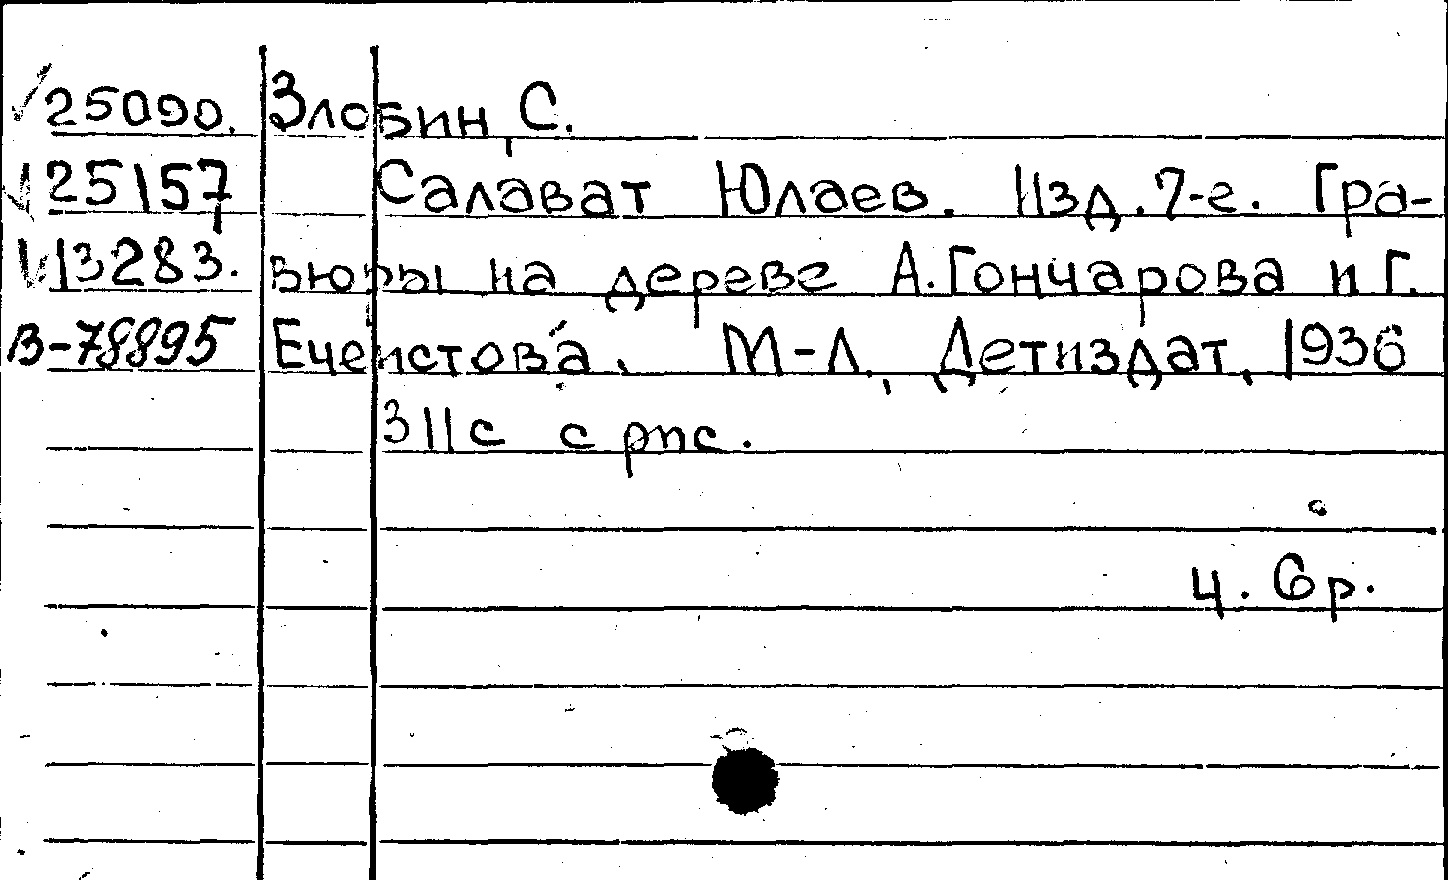 ✓25090. Злобин, С.
✓25157 Салават Юлаев. Изд. 7-е. Гра-
✓13283. вюры на дереве А. Гончарова и Г.
В-78895 Ечеистова. М-Л., Детиздат, 1936
311с с рис.
ц. 6р.